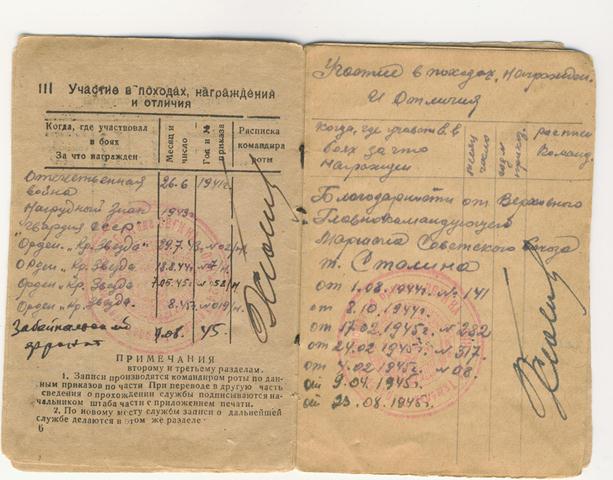 III Участие в походах, награждения
и отличия
Когда, где участвовал
в боях
За что награжден
Месяц и
число
Год и №
приказа
Расписка
командира
роты
Отечественная 26.6 1941г.
война
Нагрудный знак 1943г.
"Гвардия СССР"
Орден "Кр. Звезда"
Орден "Кр. Звезда 18.8.44г.
Орден "Кр. Звезда 7.05.45г.
Орден "Кр. Звезда.
Забайкальский 9.08. 45г.
фронт
ПРИМЕЧАНИЯ
второму и третьему разделам.
1. Записи производятся командиром роты по дан-
ным приказов по части При переводе в другую часть
сведения о прохождении службы подписываются на-
чальником штаба части с приложением печати.
2. По новому месту службы записи о дальнейшей
службе делаются в этом же разделе
6
Участие в походах, награжден.
и отличия
Когда, где участв. в
боях за что
награжден
месяц
число
Благодарности от Верховного
Главнокомандующего
Маршала Советского Союза
т. Сталина
от 1.08.1944г. № 141
от 8.10.1944г.
от 17.02.1945г. № 282
от 24.02.1945г. № 317.
от 4.02.1945г.
от 9.04.1945г.
от 23.08.1945г.